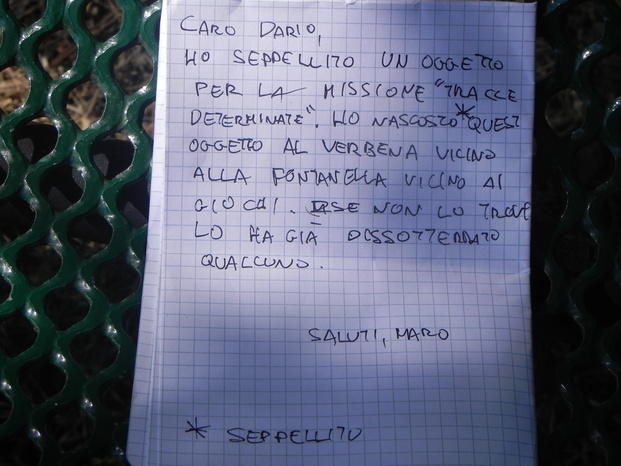 CARO DARIO,
HO SEPPELLITO UN OGGETTO
PER LA MISSIONE "TRACCE
DETERMINATE". HO NASCOSTO * QUEST
OGGETTO AL VERBENA VICINO
ALLA FONTANELLA VICINO AI
GIOCHI. SE NON LO TROVI
LO HA GIÀ DISSOTTERRATO
QUALCUNO.
SALUTI, MARO
* SEPPELLITO